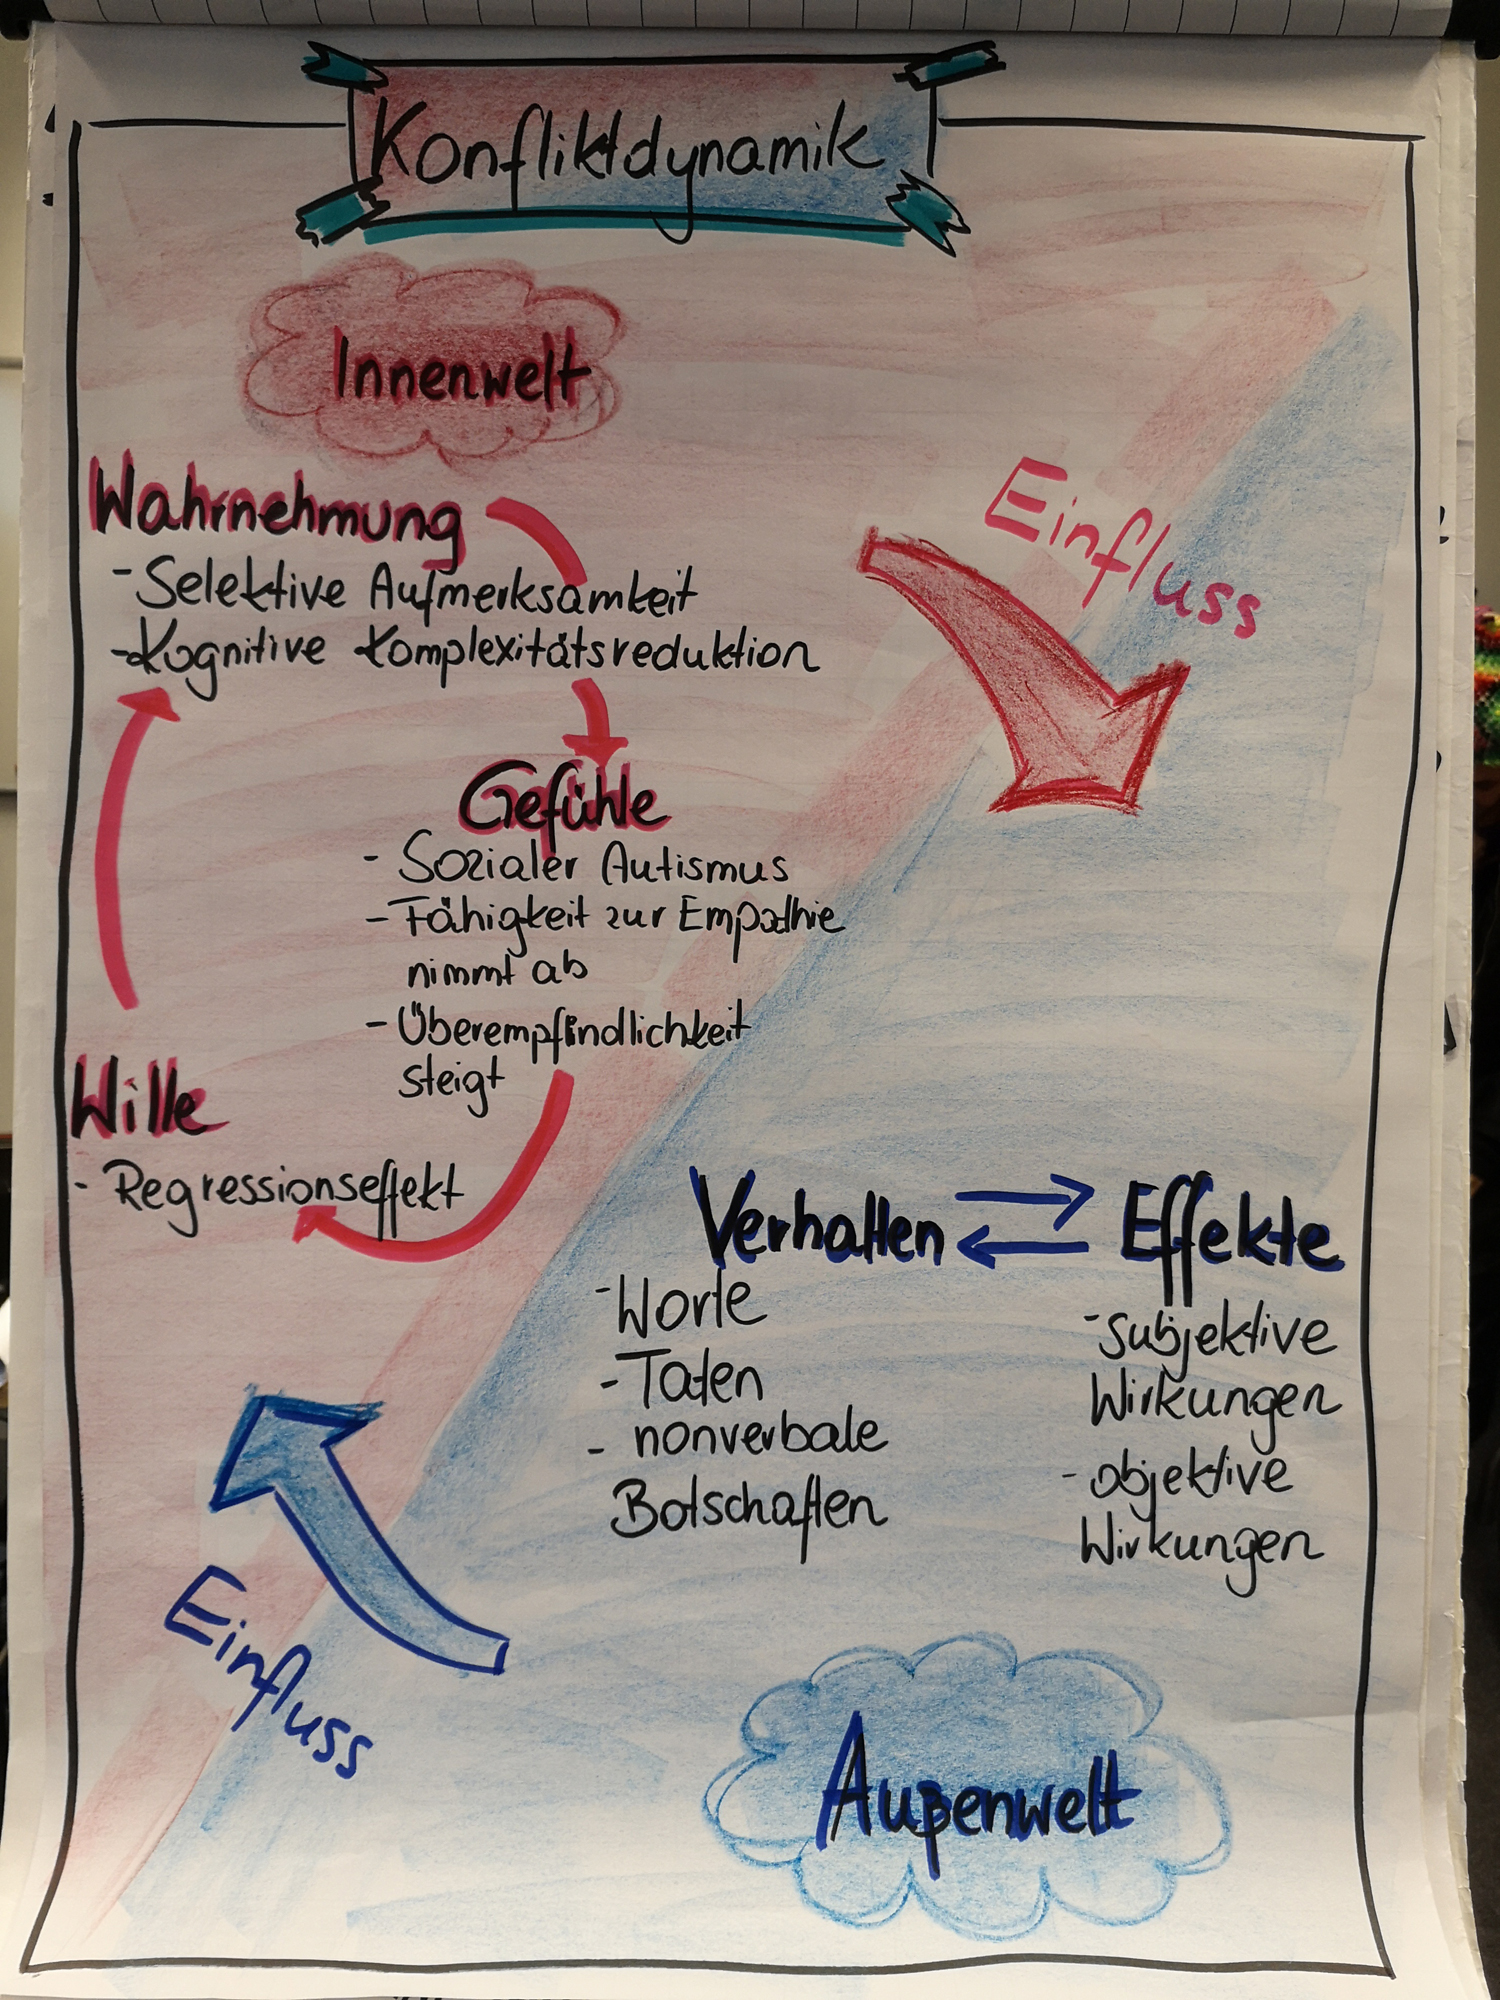 Konfliktdynamik
Innenwelt
Wahrnehmung
- Selektive Aufmerksamkeit
- Kognitive Komplexitätsreduktion
Einfluss
Gefühle
- Sozialer Autismus
- Fähigkeit zur Empathie
nimmt ab
- Überempfindlichkeit
steigt
Wille
- Regressionseffekt
Verhalten
- Worte
- Taten
- nonverbale
Botschaften
Effekte
- subjektive
Wirkungen
- objektive
Wirkungen
Einfluss
Außenwelt